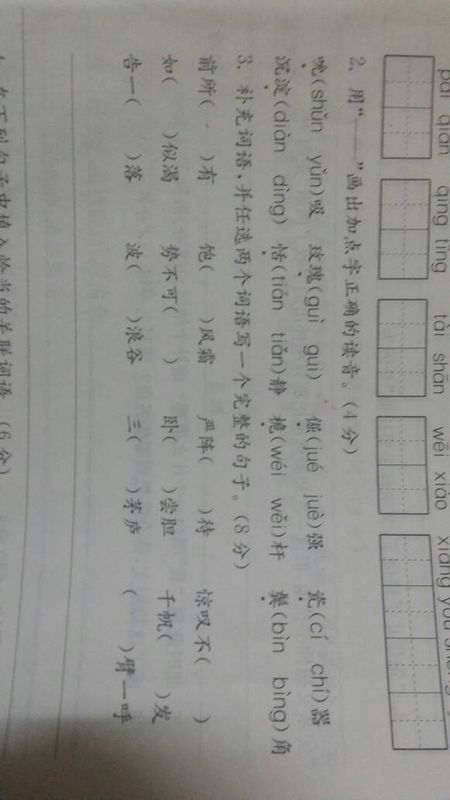 qīng tíng tài shān wēi xiào
2. 用“——”画出加点字正确的读音。(4分)
吮(shǔn yǔn)吸 玫瑰(guì gui) 倔(jué juè)强 瓷(cí chí)器
沉淀(diàn dìng) 恬(tián tiǎn)静 桅(wéi wěi)杆 鬓(bìn bìng)角
3. 补充词语,并任选两个词语写一个完整的句子。(8分)
前所( )有 饱( )风霜 严阵( )待 惊叹不( )
如( )似渴 势不可( ) 卧( )尝胆 千帆( )发
告一( )落 波( )浪谷 三( )茅庐 ( )臂一呼
在下列句子中填入恰当的关联词语 (6分)